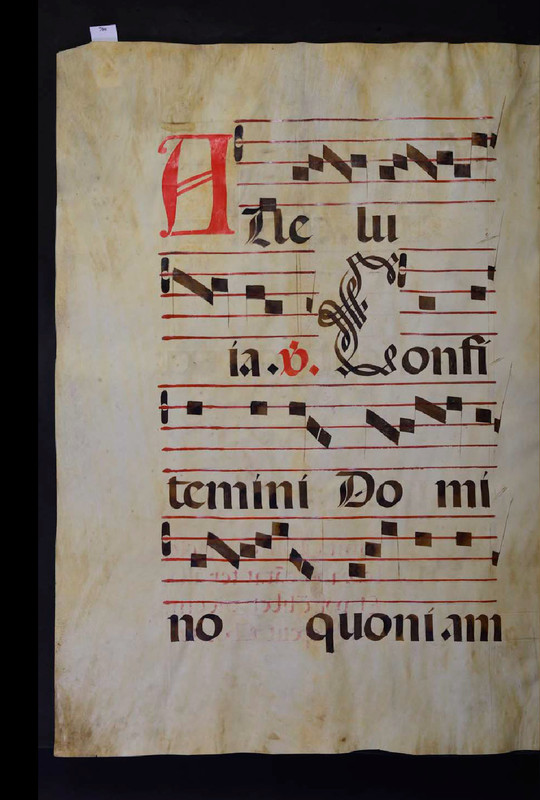 Alle lu
ia. ℣. Confi
temini Do mi
no quoniam